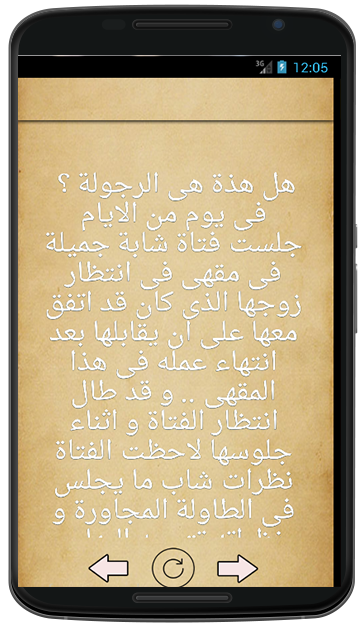 3G 12:05
هل هذة هى الرجولة ؟
فى يوم من الايام
جلست فتاة شابة جميلة
فى مقهى فى انتظار
زوجها الذى كان قد اتفق
معها على ان يقابلها بعد
انتهاء عمله فى هذا
المقهى .. و قد طال
انتظار الفتاة و اثناء
جلوسها لاحظت الفتاة
نظرات شاب ما يجلس
في الطاولة المجاورة و